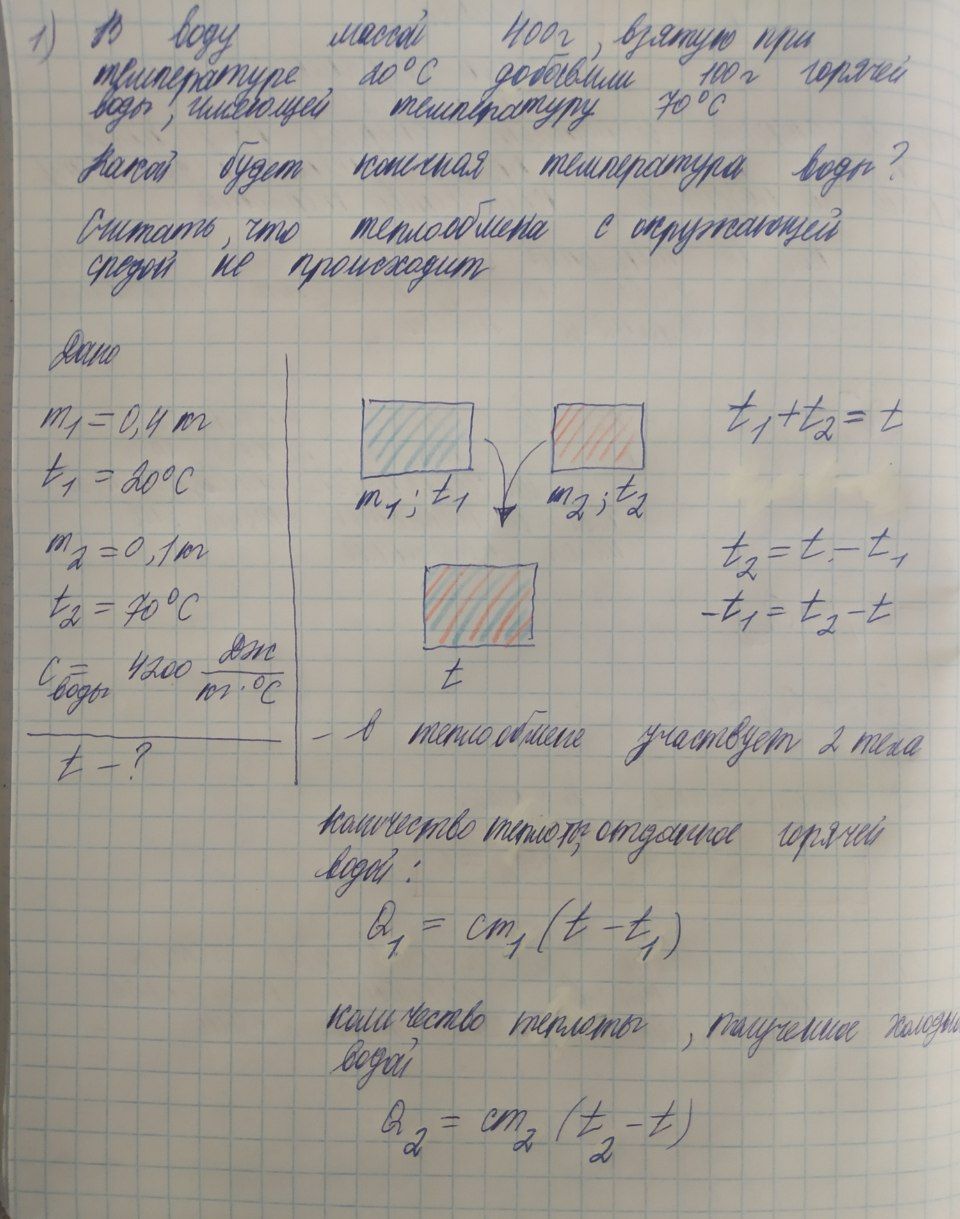 1) В воду массой 400г, взятую при
температуре 20°С добавили 100г горячей
воды, имеющей температуру 70°С
Какой будет конечная температура воды?
Считать, что теплообмена с окружающей
средой не происходит
Дано
m₁ = 0,4 кг
t₁ = 20°С
m₂ = 0,1 кг
t₂ = 70°С
c воды = 4200 Дж/кг·°С
t – ?
m₁; t₁
m₂; t₂
t
t₁ + t₂ = t
t₂ = t – t₁
-t₁ = t₂ – t
– в теплообмене участвует 2 тела
количество теплоты, отданное горячей
водой:
Q₁ = cm₁ (t – t₁)
количество теплоты, полученное холодн
водой
Q₂ = cm₂ (t₂ – t)